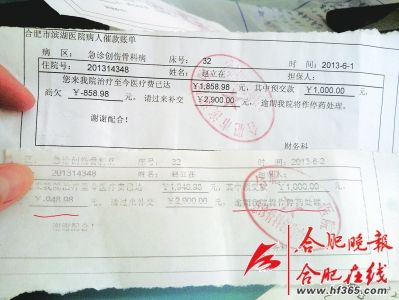 合肥市滨湖医院病人催款账单
病 区: 急诊创伤骨科病 床号: 32 时 间: 2013-6-1
住院号: 201314348 姓名: 赵立在 担保人:
您来我院治疗至今医疗费已达 ¥1,858.98 元,其中预交款 ¥1,000.00 元,
尚欠 ¥-858.98 元, 请过来补交 ¥2,900.00 元,逾期我院将作停药处理。
谢谢配合!
财务科
区: 急诊创伤骨科病 床号: 32 时 间: 2013-6-2
201314348 姓名: 赵立在
来我院治疗至今医疗费已达 ¥1,948.98 元,其中预交款 ¥1,000.00 元,
¥-948.98 元, 请过来补交 ¥2,900.00 元,逾期我院将作停药处理。
谢谢配合!
合肥晚报
合肥在线
www.hf365.com